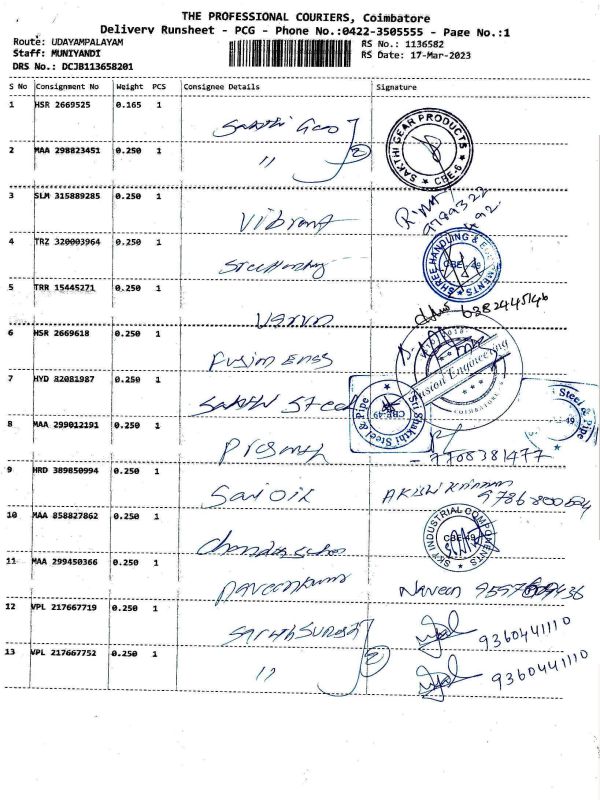 THE PROFESSIONAL COURIERS, Coimbatore
Delivery Runsheet - PCG - Phone No.:0422-3505555 - Page No.:1
Route: UDAYAMPALAYAM
RS No.: 1136582
Staff: MUNIYANDI
RS Date: 17-Mar-2023
DRS No.: DCJB113658201
S No Consignment No Weight PCS Consignee Details Signature
1 HSR 2669525 0.165 1 Sakthi
SAKTHI GEAR PRODUCTS CBE-6
2 MAA 298823451 0.250 1 " 2
3 SLM 315889285 0.250 1 Vibrant
4 TRZ 320003964 0.250 1
SHREE HANDLING &
5 TRR 15445271 0.250 1 Varun 6382445146
6 HSR 2669618 0.250 1 Fusion Engg
Fusion Engineering COIMBATORE
7 HYD 82081987 0.250 1 Sakthi Steel
Sri Shakthi Steel & Pipe
Steel & Pipe
8 MAA 299012191 0.250 1 Prasanth 7708381477
9 HRD 389850994 0.250 1 Sai Oil
10 MAA 858827862 0.250 1
SKT INDUSTRIAL COMPONENTS CBE-49
11 MAA 299450366 0.250 1 Naveenkumar Naveen
12 VPL 217667719 0.250 1 9360441110
13 VPL 217667752 0.250 1 " 2 9360441110